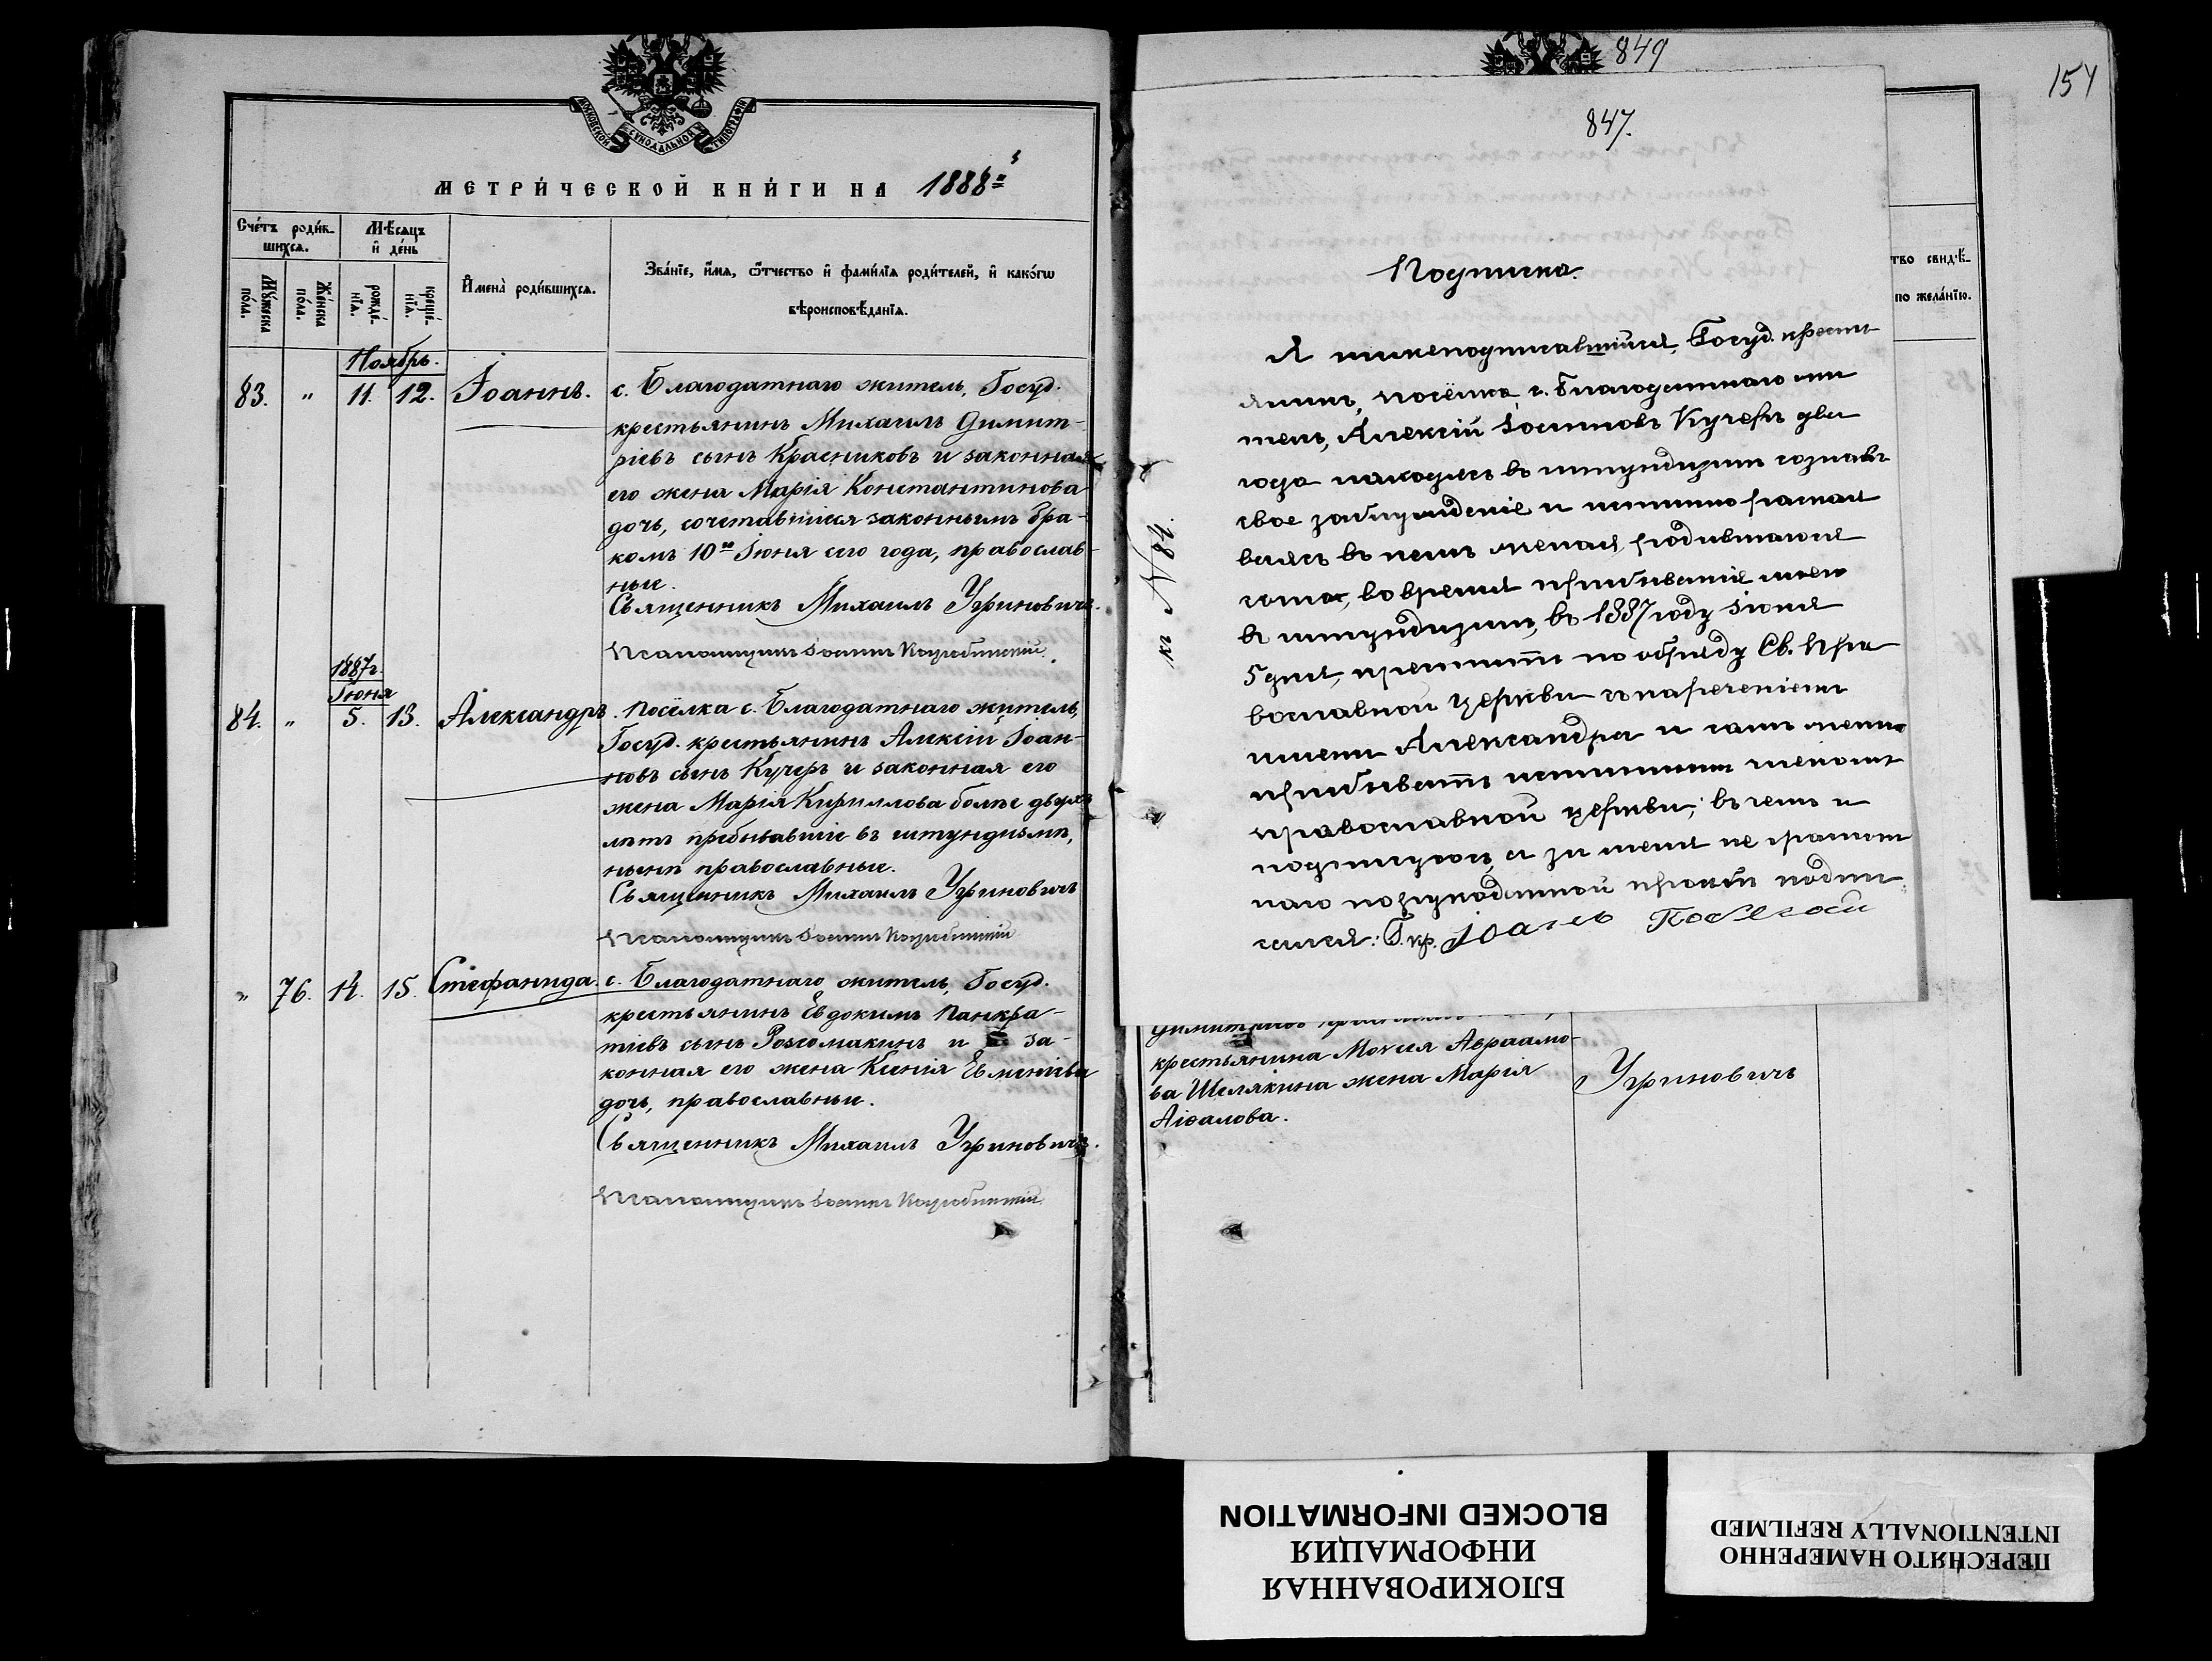 МОСКОВСКОЙ СѴНОДАЛЬНОЙ ТИПОГРАФІИ
МЕТРИ́ЧЕСКОЙ КНИ́ГИ НА 1888
Сче́тъ роди́в-
шихсѧ.
Мѣ́сѧцъ
и҆ де́нь
Мꙋ́жеска
по́ла.
Же́нска
по́ла.
рожде́-
нїѧ.
креще́-
нїѧ.
И҆мена̀ роди́вшихсѧ.
Зва́нїе, и҆́мѧ, ѻ҆́тчество и҆ фами́лїѧ роди́телей, и҆ како́гѡ
вѣроисповѣ́данїѧ.
Ноябрь.
83. " 11. 12. Іоаннъ. с. Благодатнаго житель, Госуд.
крестьянинъ Михаилъ Димит-
ріевъ сынъ Красниковъ и законная
его жена Марія Константинова
дочь, сочетавшіеся законнымъ бра-
комъ 10го Іюня сего года, православ-
ные.
Священникъ Михаилъ Угриновичъ.
Псаломщикъ Іоаннъ
1887г.
Іюня
84. " 5. 13. Александръ. посёлка с. Благодатнаго житель,
Госуд. крестьянинъ Алексій Іоан-
новъ сынъ Кучеръ и законная его
жена Марія Кириллова болѣе двухъ
лѣтъ пребывавшіе въ штундизмѣ,
нынѣ православные.
Священникъ Михаилъ Угриновичъ
Псаломщикъ Іоаннъ
" 76. 14. 15. Стефанида. с. Благодатнаго житель, Госуд.
крестьянинъ Евдокимъ Панкра-
тіевъ сынъ Розгомакинъ и за-
конная его жена Ксенія Евменіева
дочь, православные.
Священникъ Михаилъ Угриновичъ.
Псаломщикъ Іоаннъ
849
154
847.
Подписка.
Я нижеподписавшійся, Госуд. крестьян
янинъ, посёлка с. Благодатнаго жи
тель, Алексій Іоанновъ Кучеръ два
года находясь въ штундизмѣ сознавъ
свое заблужденіе и истинно раскаи
ваясь въ немъ желаю, родившагося
сына, во время пребыванія моего
въ штундизмѣ, въ 1887 году Іюня
5 дня, крестить по обряду Св. Пра
вославной церкви съ нареченіемъ
имени Александра и самъ желаю
пребывать истиннымъ членомъ
православной церкви; въ чемъ и
подписуюсь, а за меня не грамот
наго по рукоданной прозьбѣ подпи
сался: Г. кр. Іоанъ
къ № 84.
тво свид́ѣ-
по жела́нїю.
крестьянина Моѵсея Авраамо-
ва Шелякина жена Марія
Аіѳалова.
Угриновичъ
БЛОКИРОВАННАЯ
ИНФОРМАЦИЯ
BLOCKED INFORMATION
ПЕРЕСНЯТО НАМЕРЕННО
INTENTIONALLY REFILMED